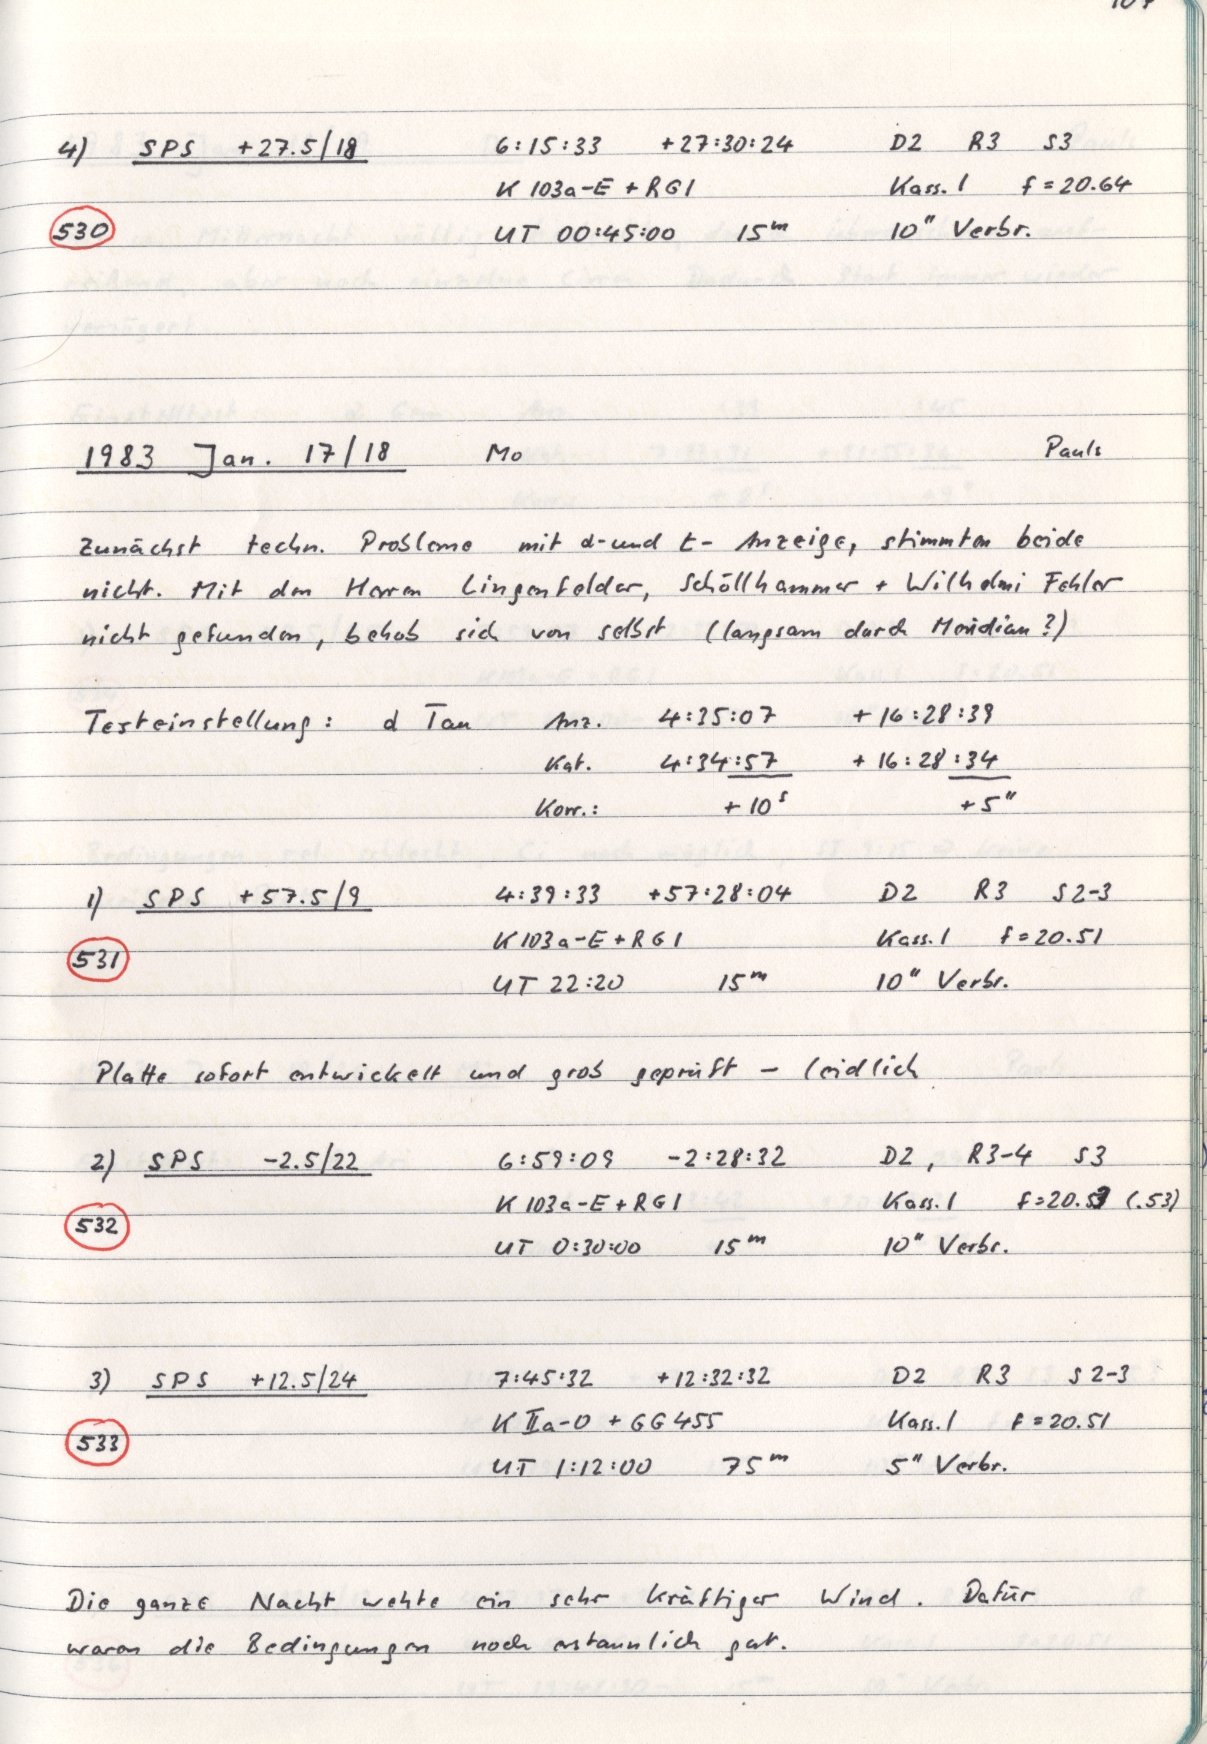 4) SPS +27.5/18 6:15:33 +27:30:24 D2 R3 S3
K 103a-E + RG1 Kass. 1 f = 20.64
530 UT 00:45:00 15m 10" Verbr.
1983 Jan. 17/18 Mo Pauls
Zunächst techn. Probleme mit α- und t- Anzeige, stimmten beide
nicht. Mit den Herren Lingenfelder, Schöllhammer + Wilhelmi Fehler
nicht gefunden, behob sich von selbst (langsam durch Meridian?)
Testeinstellung: α Tau Anz. 4:35:07 + 16:28:39
Kat. 4:34:57 + 16:28:34
Korr.: + 10s + 5"
1) SPS +57.5/9 4:39:33 +57:28:04 D2 R3 S2-3
K 103a-E + RG1 Kass. 1 f = 20.51
531
UT 22:20 15m 10" Verbr.
Platte sofort entwickelt und grob geprüft – leidlich
2) SPS -2.5/22 6:59:09 -2:28:32 D2, R3-4 S3
K 103a-E + RG1 Kass. 1 f=20.53 (.53)
532
UT 0:30:00 15m 10" Verbr.
3) SPS +12.5/24 7:45:32 +12:32:32 D2 R3 S2-3
K IIa-O + GG455 Kass. 1 f = 20.51
533
UT 1:12:00 75m 5" Verbr.
Die ganze Nacht wehte ein sehr kräftiger Wind. Dafür
waren die Bedingungen noch erstaunlich gut.